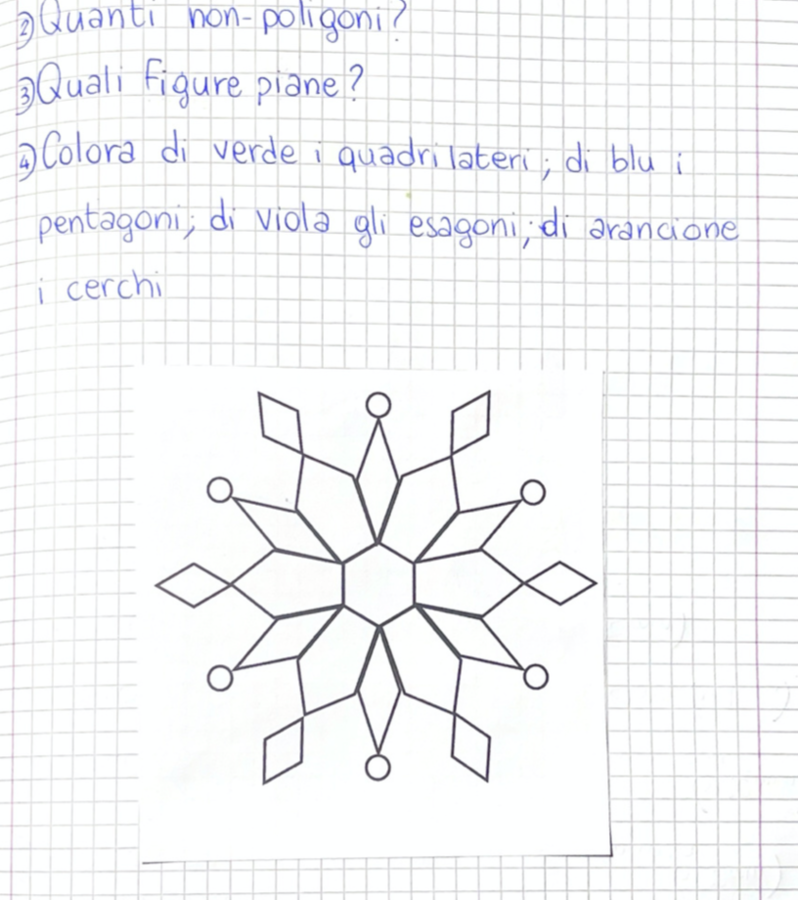 2) Quanti non-poligoni?
3) Quali figure piane?
4) Colora di verde i quadrilateri; di blu i
pentagoni; di viola gli esagoni; di arancione
i cerchi